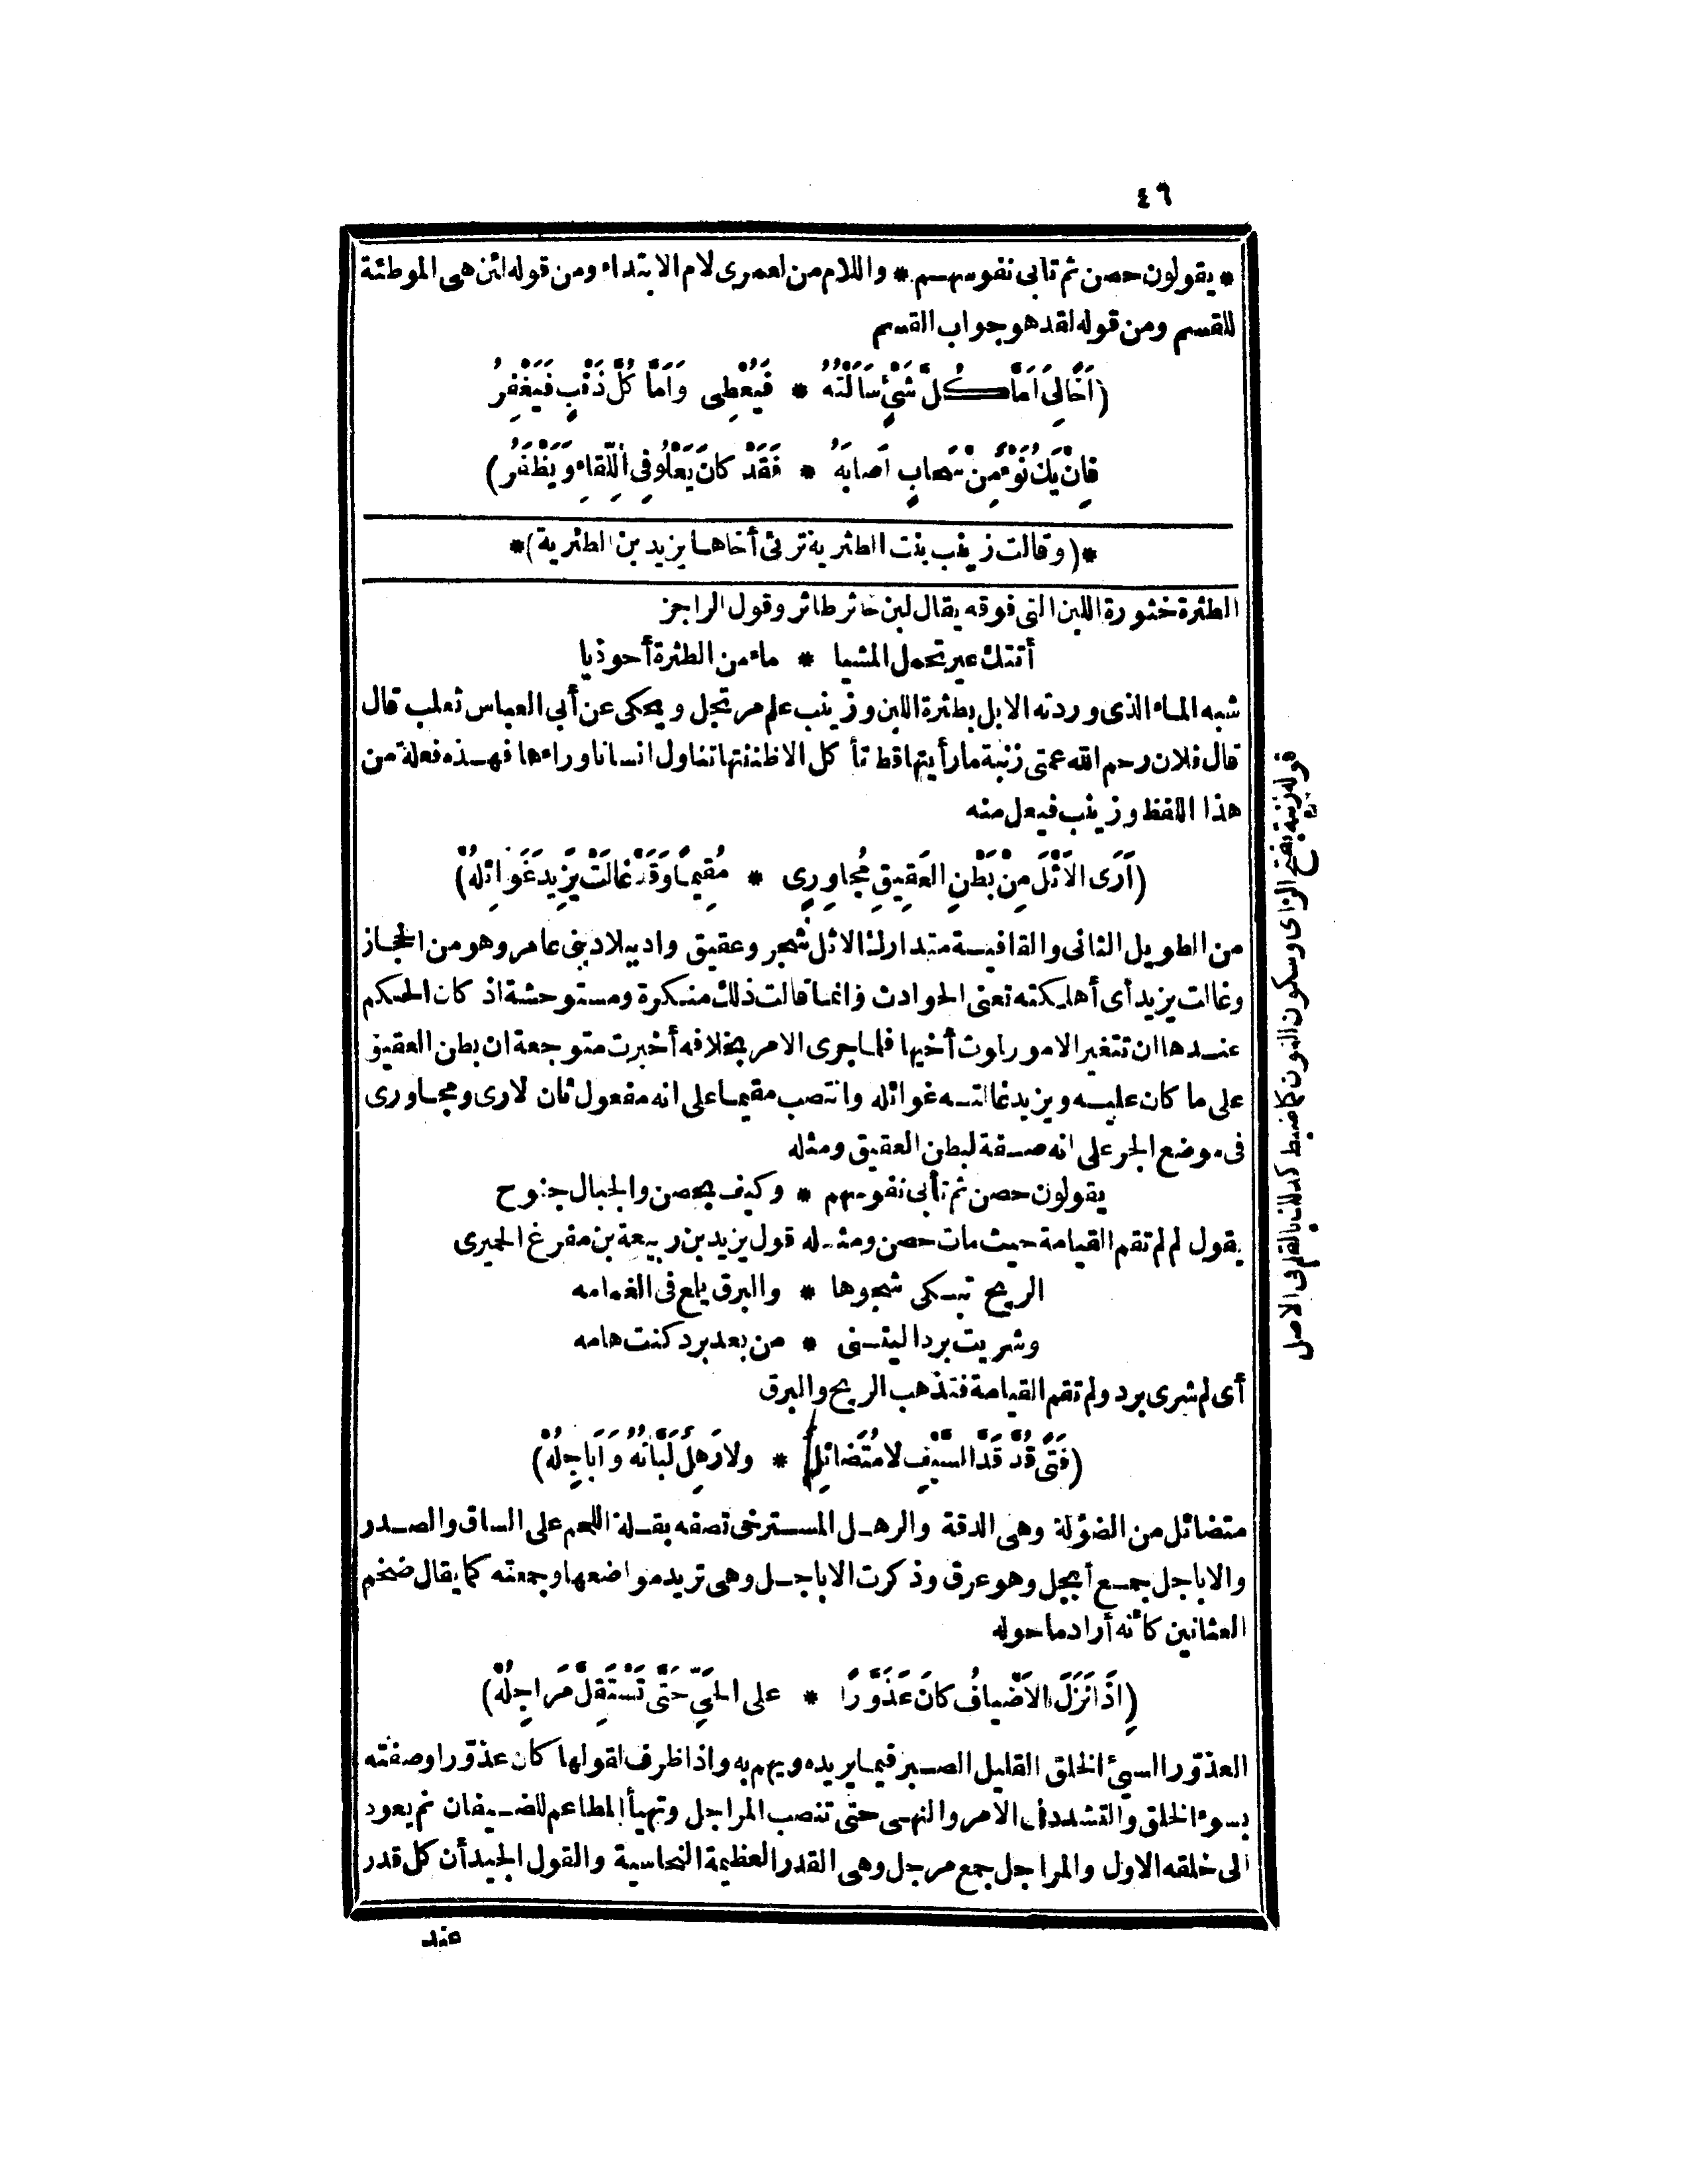 ٤٦
* يقولون حصن ثم تابى نفوسهم * واللام من لعمرى لام الابتداء ومن قوله لئن هى الموطئة
للقسم ومن قوله لقد هو جواب القسم
(اَخَالِىَ اَمَّا كُلَّ شَىْئٍ سَاَلْتُهُ * فَيُعْطِى وَاَمَّا كُلَّ ذَنْبٍ فَيَغْفِرُ
فِانْ يَكُ نَوْءٌ مِنْ سَحابٍ اَصابَهُ * فَقَدْ كانَ يَعْلُو فِى اللِّقاءِ وَيَظْفَرُ)
*(وقالت زينب بنت الطثرية ترثى أخاها يزيد بن الطثرية)*
الطثرة خثورة اللبن التى فوقه يقال لبن خاثر طاثر وقول الراجز
أتتك عير تحمل المشيا * ماء من الطثرة أحوذيا
شبه الماء الذى وردته الابل بطثرة اللبن وزينب علم مرتجل ويحكى عن أبى العباس ثعلب قال
قال فلان رحم الله عمتى زنبة ما رأيتها قط تأكل الا ظننتها تناول انسانا وراءها فهذه فعلة من
هذا اللفظ وزينب فيعل منه
(اَرَى الاَثْلَ مِنْ بَطْنِ العَقِيقِ مُجاوِرِى * مُقِيمًا وَقَدْ غالَتْ يَزِيدَ غَوَائِلُهْ)
من الطويل الثانى والقافية متدارك الاثل شجر وعقيق واد ببلاد بنى عامر وهو من الحجاز
وغالت يزيد أى أهلكته تعنى الحوادث وانما قالت ذلك منكرة ومستوحشة اذ كان الحكم
عندها ان تتغير الامور لموت أخيها فلما جرى الامر بخلافه أخبرت متوجعة ان بطن العقيق
على ما كان عليه ويزيد غالته غوائله وانتصب مقيما على انه مفعول ثان لارى ومجاورى
فى موضع الجر على انه صفة لبطن العقيق ومثله
يقولون حصن ثم تأبى نفوسهم * وكيف بحصن والجبال جنوح
يقول لم لم تقم القيامة حيث مات حصن ومثله قول يزيد بن ربيعة بن مفرغ الحميرى
الريح تبكى شجوها * والبرق يلمع فى الغمامه
وشريت بردا ليتنى * من بعد برد كنت هامه
أى لم شرى برد ولم تقم القيامة فتذهب الريح والبرق
(فَتًى قُدَّ قَدَّ السَّيْفِ لا مُتَضائِلٌ * ولا رَهِلٌ لَبَّاتُهُ وَاَباجِلُهْ)
متضائل من الضؤلة وهى الدقة والرهل المسترخى تصفه بقلة اللحم على الساق والصدر
والاباجل جمع أبجل وهو عرق وذكرت الاباجل وهى تريد مواضعها وجمعته كما يقال ضخم
العثانين كأنه أراد ما حوله
(اِذَا نَزَلَ الاَضْيافُ كانَ عَذَوَّرًا * على الحَىِّ حَتَّى تَسْتَقِلَّ مَراجِلُهْ)
العذوّر السيئ الخلق القليل الصبر فيما يريده ويهم به واذا ظرف لقولها كان عذوّرا وصفته
بسوء الخلق والتشدد فى الامر والنهى حتى تنصب المراجل وتهيأ المطاعم للضيفان ثم يعود
الى خلقه الاول والمراجل جمع مرجل وهى القدر العظيمة النحاسية والقول الجيد أن كل قدر
عند
قوله زنبة بفتح الزاى وسكون النون كما ضبط كذلك بالقلم فى الاصل